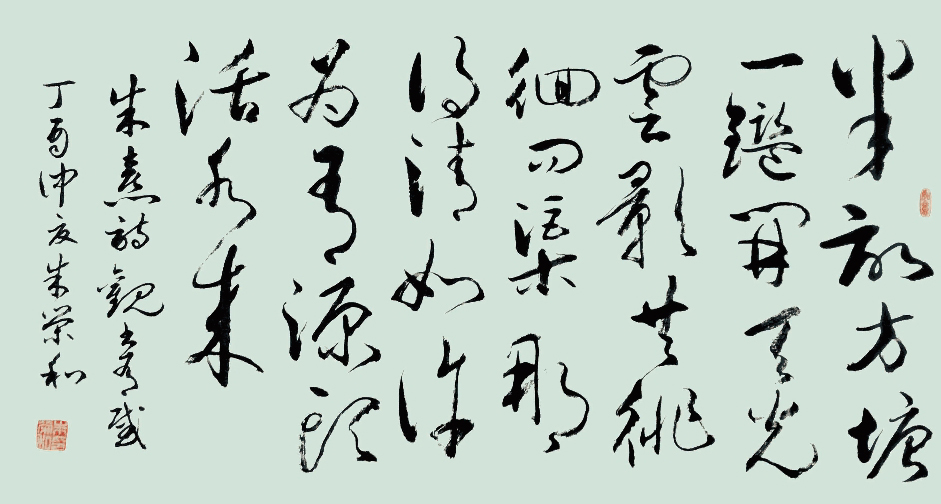 半畝方塘
一鑑開天光
雲影共徘
徊问渠那
得清如许
为有源頭
活水来
朱熹詩觀书有感
丁酉仲夏朱荣和